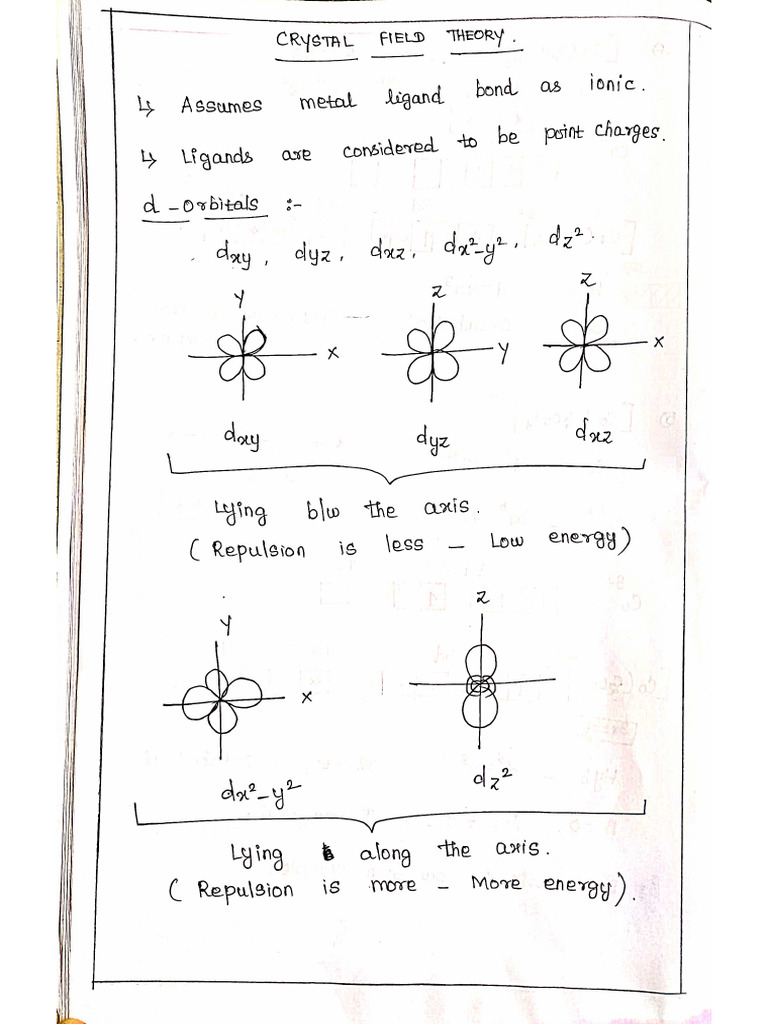 CRYSTAL FIELD THEORY.
↳ Assumes metal ligand bond as ionic.
↳ Ligands are considered to be point charges.
d-orbitals :-
dxy, dyz, dxz, dx²-y², dz².
Y Z Z
X Y X
dxy dyz dxz
Lying b/w the axis.
(Repulsion is less - Low energy)
Y Z
X
dx²-y² dz²
Lying along the axis.
(Repulsion is more - More energy).